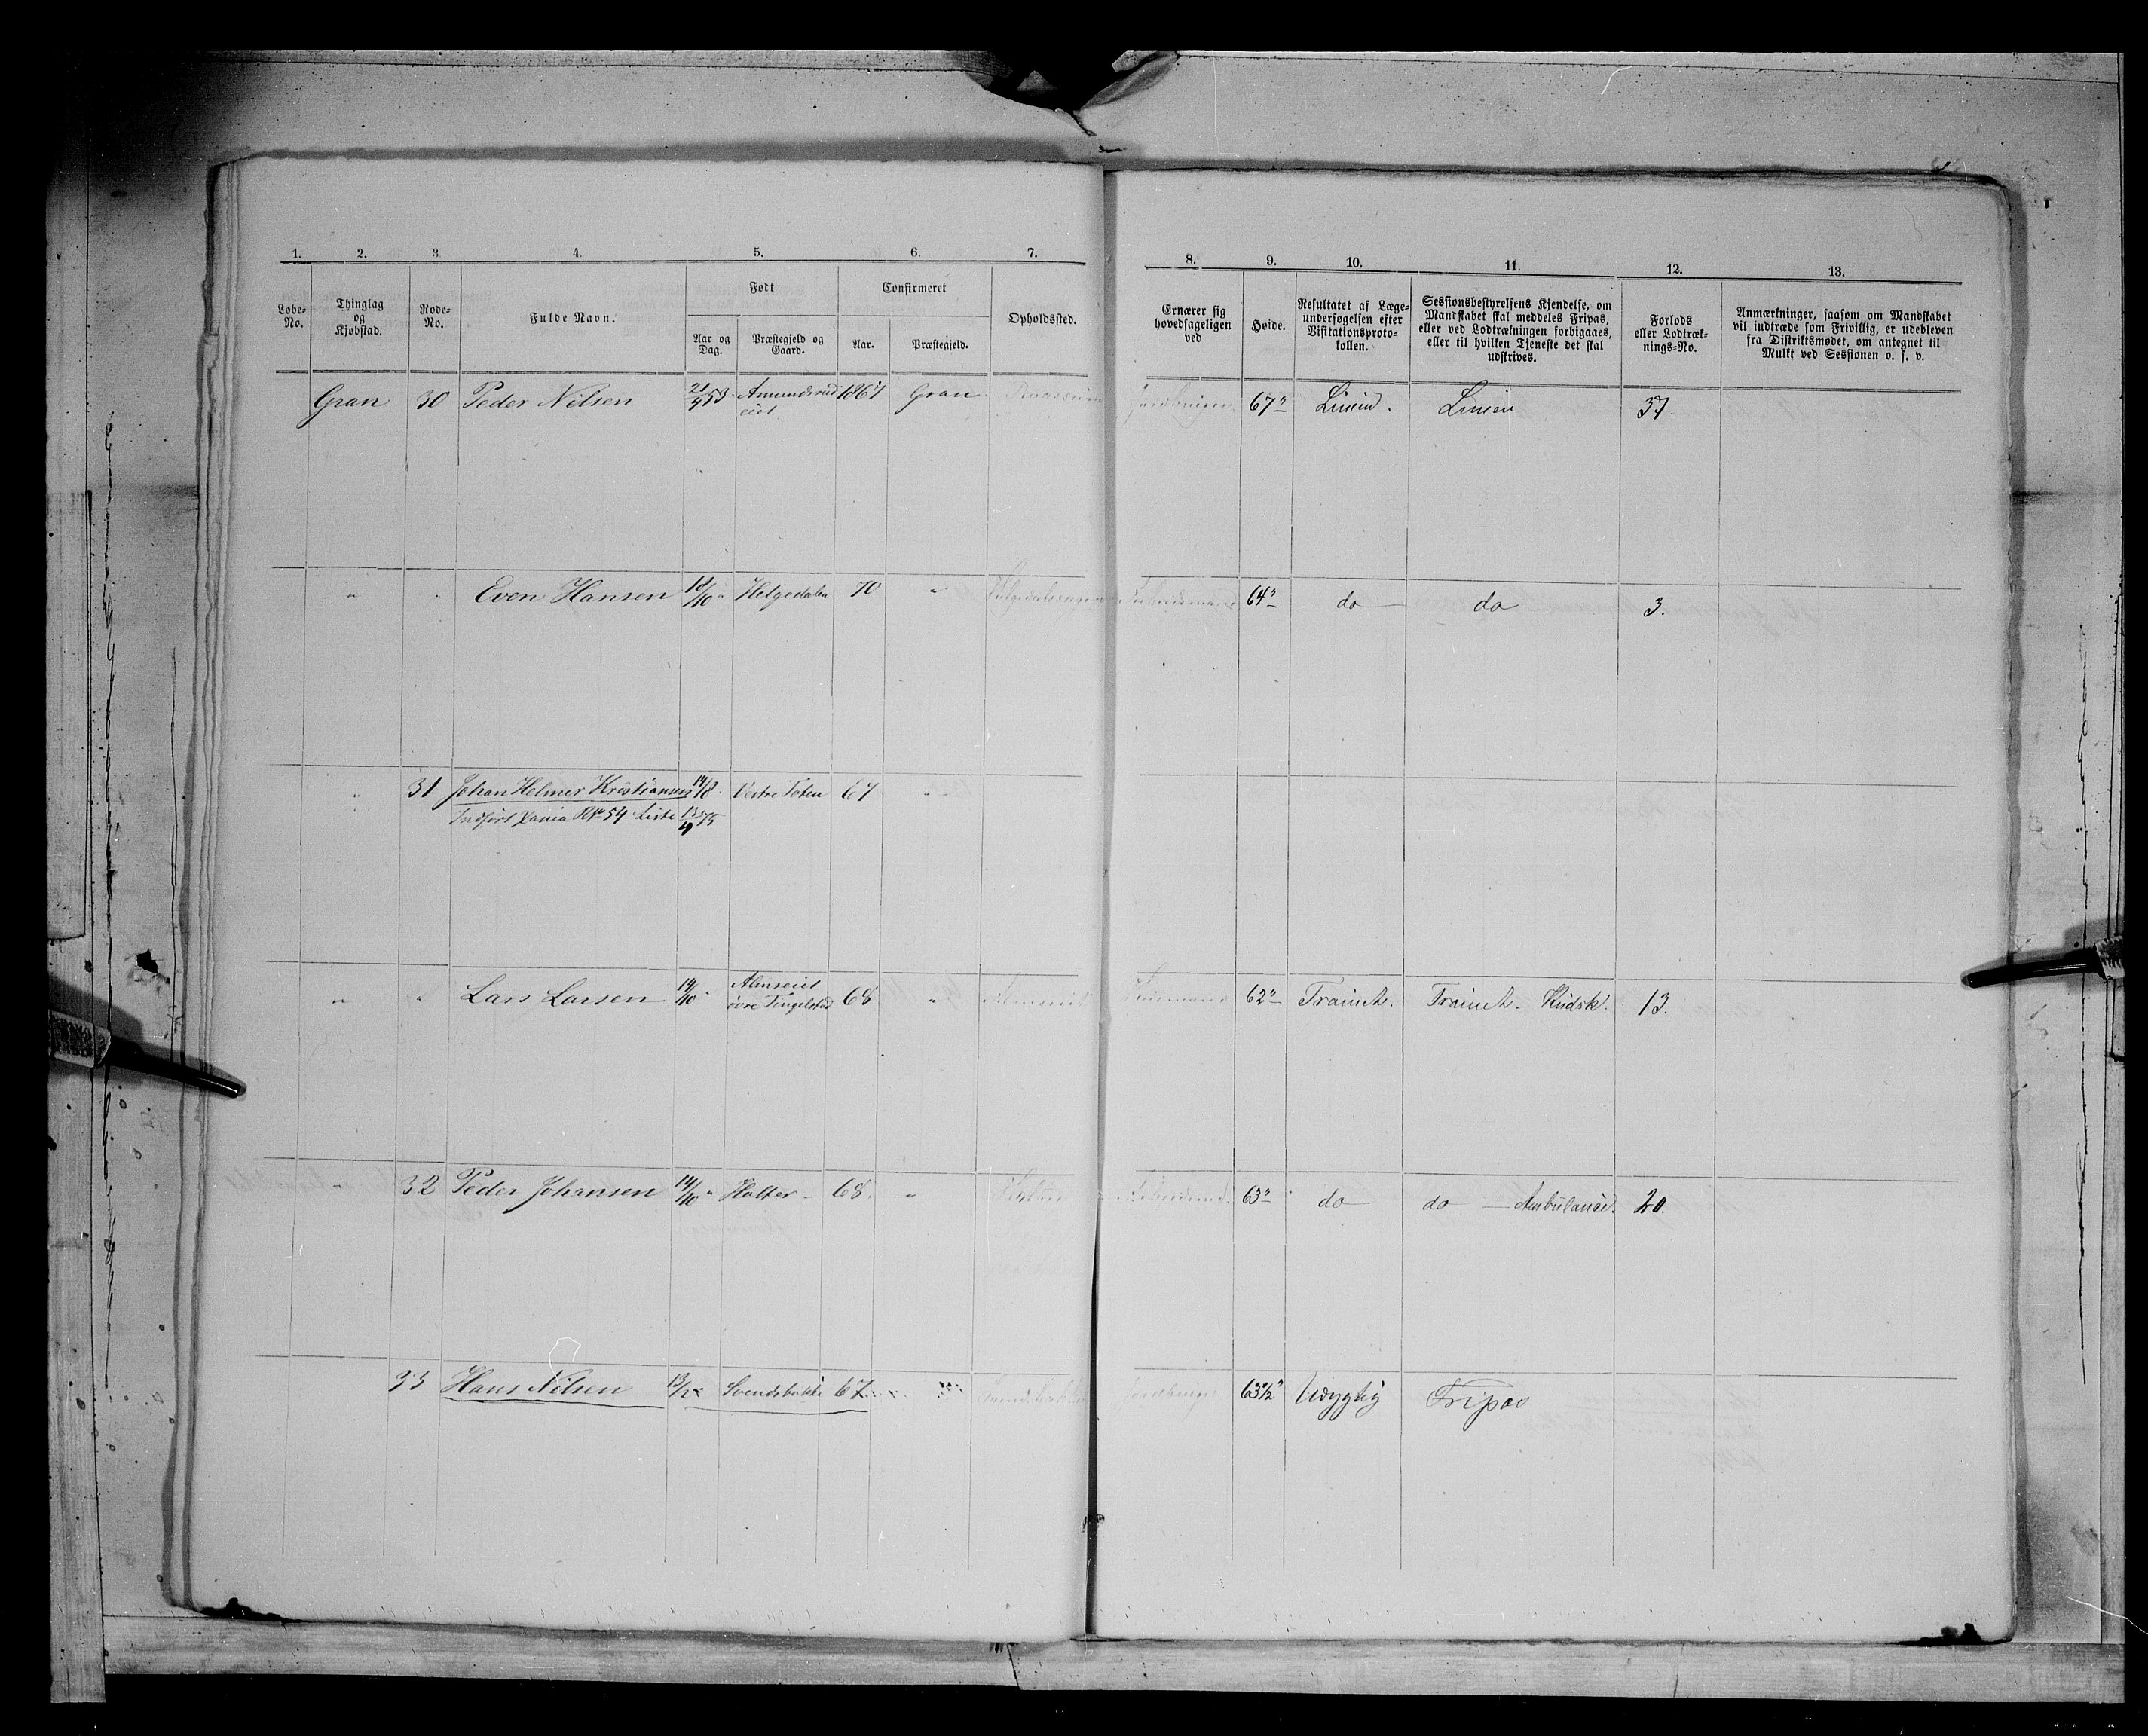 1. 2. 3. 4. 5. 6. 7. 8. 9. 10. 11. 12. 13.
Løbe-No.
Thinglag og Kjøbstad.
Rode-No.
Fulde Navn.
Født
Aar og Dag.
Præstegjeld og Gaard.
Confirmeret
Aar.
Præstegjeld.
Opholdssted.
Ernærer sig hovedsageligen ved
Høide.
Resultatet af Læge-undersøgelsen efter Visitationsproto-kollen.
Sessionsbestyrelsens Kjendelse, om Mandskabet skal meddeles Fripas, eller ved Lodtrækningen forbigaaes, eller til hvilken Tjeneste det skal udskrives.
Forlods eller Lodtræk-nings-No.
Anmærkninger, saasom om Mandskabet vil indtræde som Frivillig, er udebleven fra Distriktsmødet, om antegnet til Mulkt ved Sessionen o. s. v.
Gran 30 Peder Nilsen 21/4 53 Amundsrud 1867 Gran 67" Linied. Linien 37.
eiet
" " Even Hansen 18/10 " Helgedalen 70 " 64" do do 3.
" 31 Johan Helmer Kristiansen 14/8 " Vestre Toten 67 "
Indført Xania RNo 54 Liste 13/4 75
" " Lars Larsen 14/10 " Almseiet 68 " Almseiet 62" Trainet. Trainet. Kudsk. 13.
øvre Tingelstad
" 32 Peder Johansen 14/10 " Halter 68. " 63" do do Ambulance. 20.
33 Hans Nilsen Svendsbakke 67 63 1/2" Udygtig Fripas